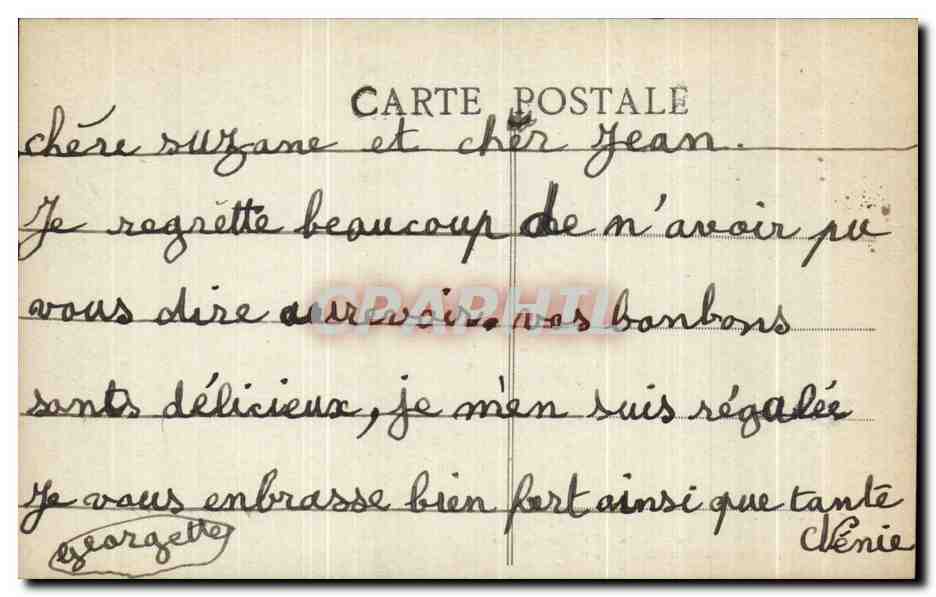 CARTE POSTALE
chére suzane et cher Jean.
Je regrètte beaucoup de n'avoir pu
vous dire aurevoir. vos bonbons
CPAPHIL
sonts délicieux, je m'en suis régalée
Je vous enbrasse bien fort ainsi que tante
Génie
Georgette